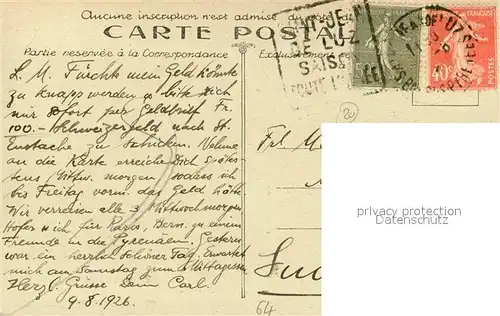 Aucune inscription n'est admise du côté de
CARTE POSTAL
Partie réservée à la Correspondance
L. M. Fürchte mein Geld könnte
zu knapp werden & bitte Dich
mir sofort per Geldbrief Fr.
100.— Schweizergeld nach St.
Eustache zu schicken. Nehme
an die Karte erreiche Dich späte-
stens Mittw. morgen, sodass ich
bis Freitag vorm. das Geld hätte.
Wir verreisen alle 3 Mittwochmorgen
Hofer & ich für Paris, Bern. zu einem
Freunde in die Pyrenäen. Gestern
war ein herrlich schöner Tag. Erwartet
mich am Samstag zum Mittagessen
Herzl. Grüsse Dein Carl.
9.8.1926.
DE LUZ
POSTES
40c
Frl. M
Luz
24
64
privacy protection